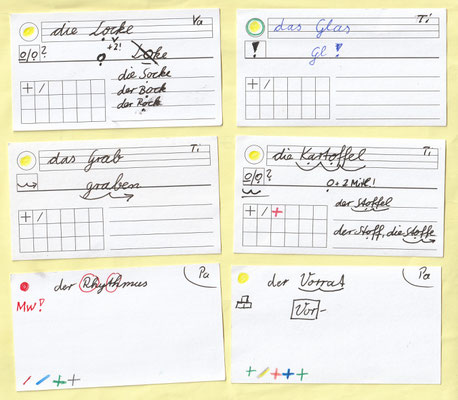 die Locke
Va
o/o?
+2!
Doke
die Socke
der Bock
der Rock
+ /
das Glas
Ti
!
Gl !
+ /
das Grab
Ti
graben
+ /
die Kartoffel
Ti
o/o?
o + 2 Mitl!
der Stoffel
+ / +
der Stoff, die Stoffe
der Rhythmus
Pa
Mw!
/ / + +
der Vorrat
Pa
Vor-
+ / + + +